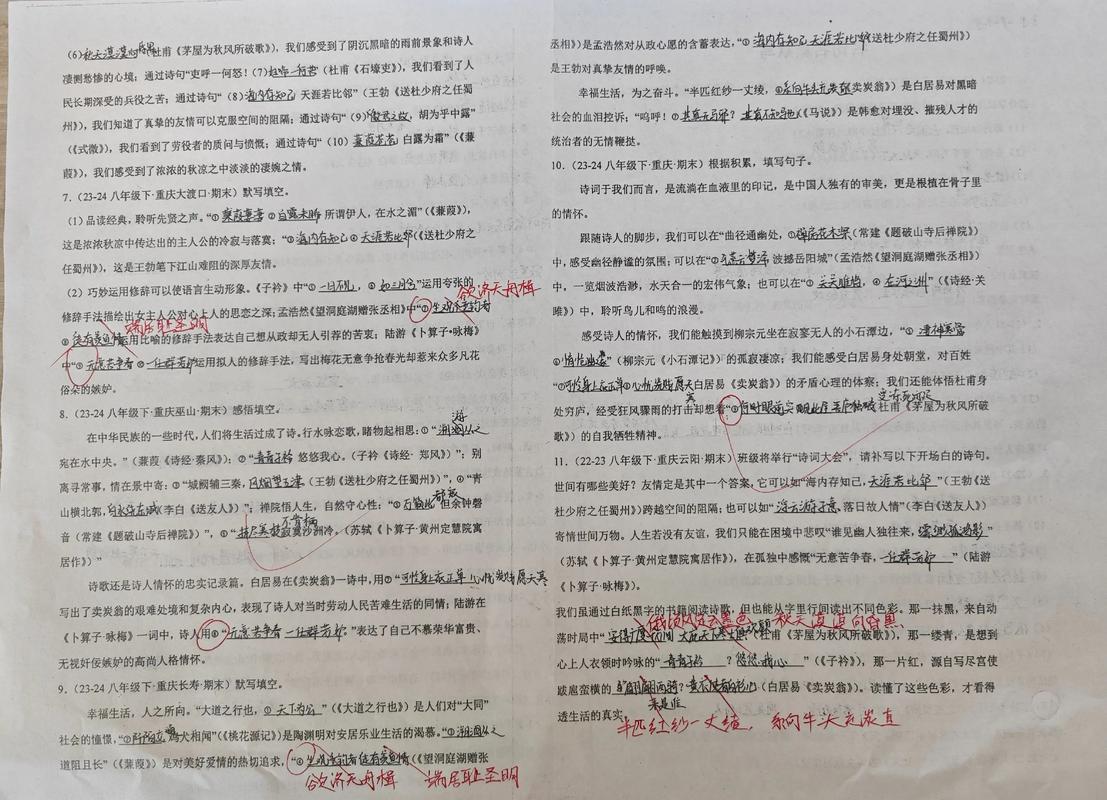 (6)秋天漠漠向昏黑(杜甫《茅屋为秋风所破歌》),我们感受到了阴沉黑暗的雨前景象和诗人
凄恻愁惨的心境;通过诗句“吏呼一何怒!(7)啼一何苦”(杜甫《石壕吏》),我们看到了人
民长期深受的兵役之苦;通过诗句“(8)海内存知己 天涯若比邻”(王勃《送杜少府之任蜀
州》),我们知道了真挚的友情可以克服空间的阻隔;通过诗句“(9)微君之故,胡为乎中露”
(《式微》),我们看到了劳役者的质问与愤慨;通过诗句“(10)蒹葭苍苍 白露为霜”(《蒹
葭》),我们感受到了浓浓的秋凉之中淡淡的凄婉之情。
7.(23-24 八年级下·重庆大渡口·期末)默写填空。
(1)品读经典,聆听先贤之声。“①蒹葭萋萋 ②白露未晞 所谓伊人,在水之湄”(《蒹葭》),
这是浓浓秋凉中传达出的主人公的冷寂与落寞;“③海内存知己④天涯若比邻(《送杜少府之
任蜀州》),这是王勃笔下江山难阻的深厚友情。
(2)巧妙运用修辞可以使语言生动形象。《子衿》中“①一日不见,②如三月兮”运用夸张的
欲济无舟楫
修辞手法描绘出女主人公对心上人的思恋之深;孟浩然《望洞庭湖赠张丞相》中“③坐观垂钓者
端居耻圣明
④徒有羡鱼情”运用比喻的修辞手法表达自己想从政却无人引荐的苦衷;陆游《卜算子•咏梅》
中“⑤无意苦争春 ⑥一任群芳妒运用拟人的修辞手法,写出梅花无意争抢春光却惹来众多凡花
俗朵的嫉妒。
8.(23-24 八年级下·重庆巫山·期末)感悟填空。
在中华民族的一些时代,人们将生活过成了诗。行水咏恋歌,睹物起相思:①“溯洄从之
游
宛在水中央。”(蒹葭《诗经·秦风》);②“青青子衿 悠悠我心。(子衿《诗经· 郑风》)”;别
离寻常事,情在景中寄:③“城阙辅三秦,风烟望五津(王勃《送杜少府之任蜀州》)”,④“青
山横北郭,白水绕东城(李白《送友人》)”;禅院悟人生,自然守心性:“⑤万籁此都寂 但余钟磬
音(常建《题破山寺后禅院》)”,⑥“拣尽寒枝不肯栖 寂寞沙洲冷。(苏轼《卜算子·黄州定慧院寓
居作》)”
诗歌还是诗人情怀的忠实记录篇。白居易在《卖炭翁》一诗中,用⑦“可怜身上衣正单 心忧炭贱愿天寒
写出了卖炭翁的艰难处境和复杂内心,表现了诗人对当时劳动人民苦难生活的同情;陆游在
《卜算子·咏梅》一词中,诗人用⑧“无意苦争春 一任群芳妒”表达了自己不慕荣华富贵、
无视奸佞嫉妒的高尚人格情怀。
9.(23-24 八年级下·重庆长寿·期末)默写填空。
幸福生活,人之所向。“大道之行也,①天下为公”(《大道之行也》)是人们对“大同”
社会的憧憬,“②阡陌交通鸡犬相闻”(《桃花源记》)是陶渊明对安居乐业生活的渴慕。“③溯洄从之
道阻且长”(《蒹葭》)是对美好爱情的热切追求,“④坐观垂钓者 徒有羡鱼情(《望洞庭湖赠张
欲济无舟楫 端居耻圣明
丞相》)是孟浩然对从政心愿的含蓄表达,“⑤海内存知己 天涯若比邻(送杜少府之任蜀州》)
是王勃对真挚友情的呼唤。
幸福生活,为之奋斗。“半匹红纱一丈绫,⑥系向牛头充炭直(卖炭翁》)是白居易对黑暗
社会的血泪控诉;“呜呼!⑦其真无马邪?其真不知马也(《马说》)是韩愈对埋没、摧残人才的
统治者的无情鞭挞。
10.(23-24 八年级下·重庆·期末)根据积累,填写句子。
诗词于我们而言,是流淌在血液里的印记,是中国人独有的审美,更是根植在骨子里
的情怀。
跟随诗人的脚步,我们可以在“曲径通幽处,①禅房花木深(常建《题破山寺后禅院》)
中,感受幽径静谧的氛围;可以在“②气蒸云梦泽 波撼岳阳城”(孟浩然《望洞庭湖赠张丞相》)
中,一览烟波浩渺,水天合一的宏伟气象;也可以在“③关关雎鸠,④在河之洲”(《诗经·关
雎》)中,聆听鸟儿和鸣的浪漫。
感受诗人的情怀,我们能触摸到柳宗元坐在寂寥无人的小石潭边,“⑤凄神寒骨
⑥悄怆幽邃”(柳宗元《小石潭记》)的孤寂凄凉;我们能感受白居易身处朝堂,对百姓
“⑦可怜身上衣正单⑧心忧炭贱愿天寒白居易《卖炭翁》)的矛盾心理的体察;我们还能体悟杜甫身
处穷庐,经受狂风骤雨的打击却想着“⑨何时眼前突兀见此屋 吾庐独破受冻死亦足(杜甫《茅屋为秋风所破
歌》)的自我牺牲精神。
11.(22-23 八年级下·重庆云阳·期末)班级将举行“诗词大会”,请补写以下开场白的诗句。
世间有哪些美好?友情定是其中一个答案,它可以如“海内存知己,天涯若比邻”(王勃《送
杜少府之任蜀州》)跨越空间的阻隔;也可以如“浮云游子意,落日故人情”(李白《送友人》)
寄情世间万物。人生若没有友谊,我们只能在困境中悲叹“谁见幽人独往来,缥缈孤鸿影”
(苏轼《卜算子·黄州定慧院寓居作》),在孤独中感慨“无意苦争春,一任群芳妒”(陆游
《卜算子·咏梅》)。
我们虽通过白纸黑字的书籍阅读诗歌,但也能从字里行间读出不同色彩。那一抹黑,来自动
俄顷风定云墨色 秋天漠漠向昏黑
荡时局中“安得广厦千万间 大庇天下寒士俱欢颜(杜甫《茅屋为秋风所破歌》),那一缕青,是想到
心上人衣领时吟咏的“青青子衿?悠悠我心”(《子衿》),那一片红,源自写尽宫使
跋扈蛮横的 翩翩两骑来是谁?黄衣使者白衫儿(白居易《卖炭翁》)。读懂了这些色彩,才看得
透生活的真实。
半匹红纱一丈绫,系向牛头充炭直